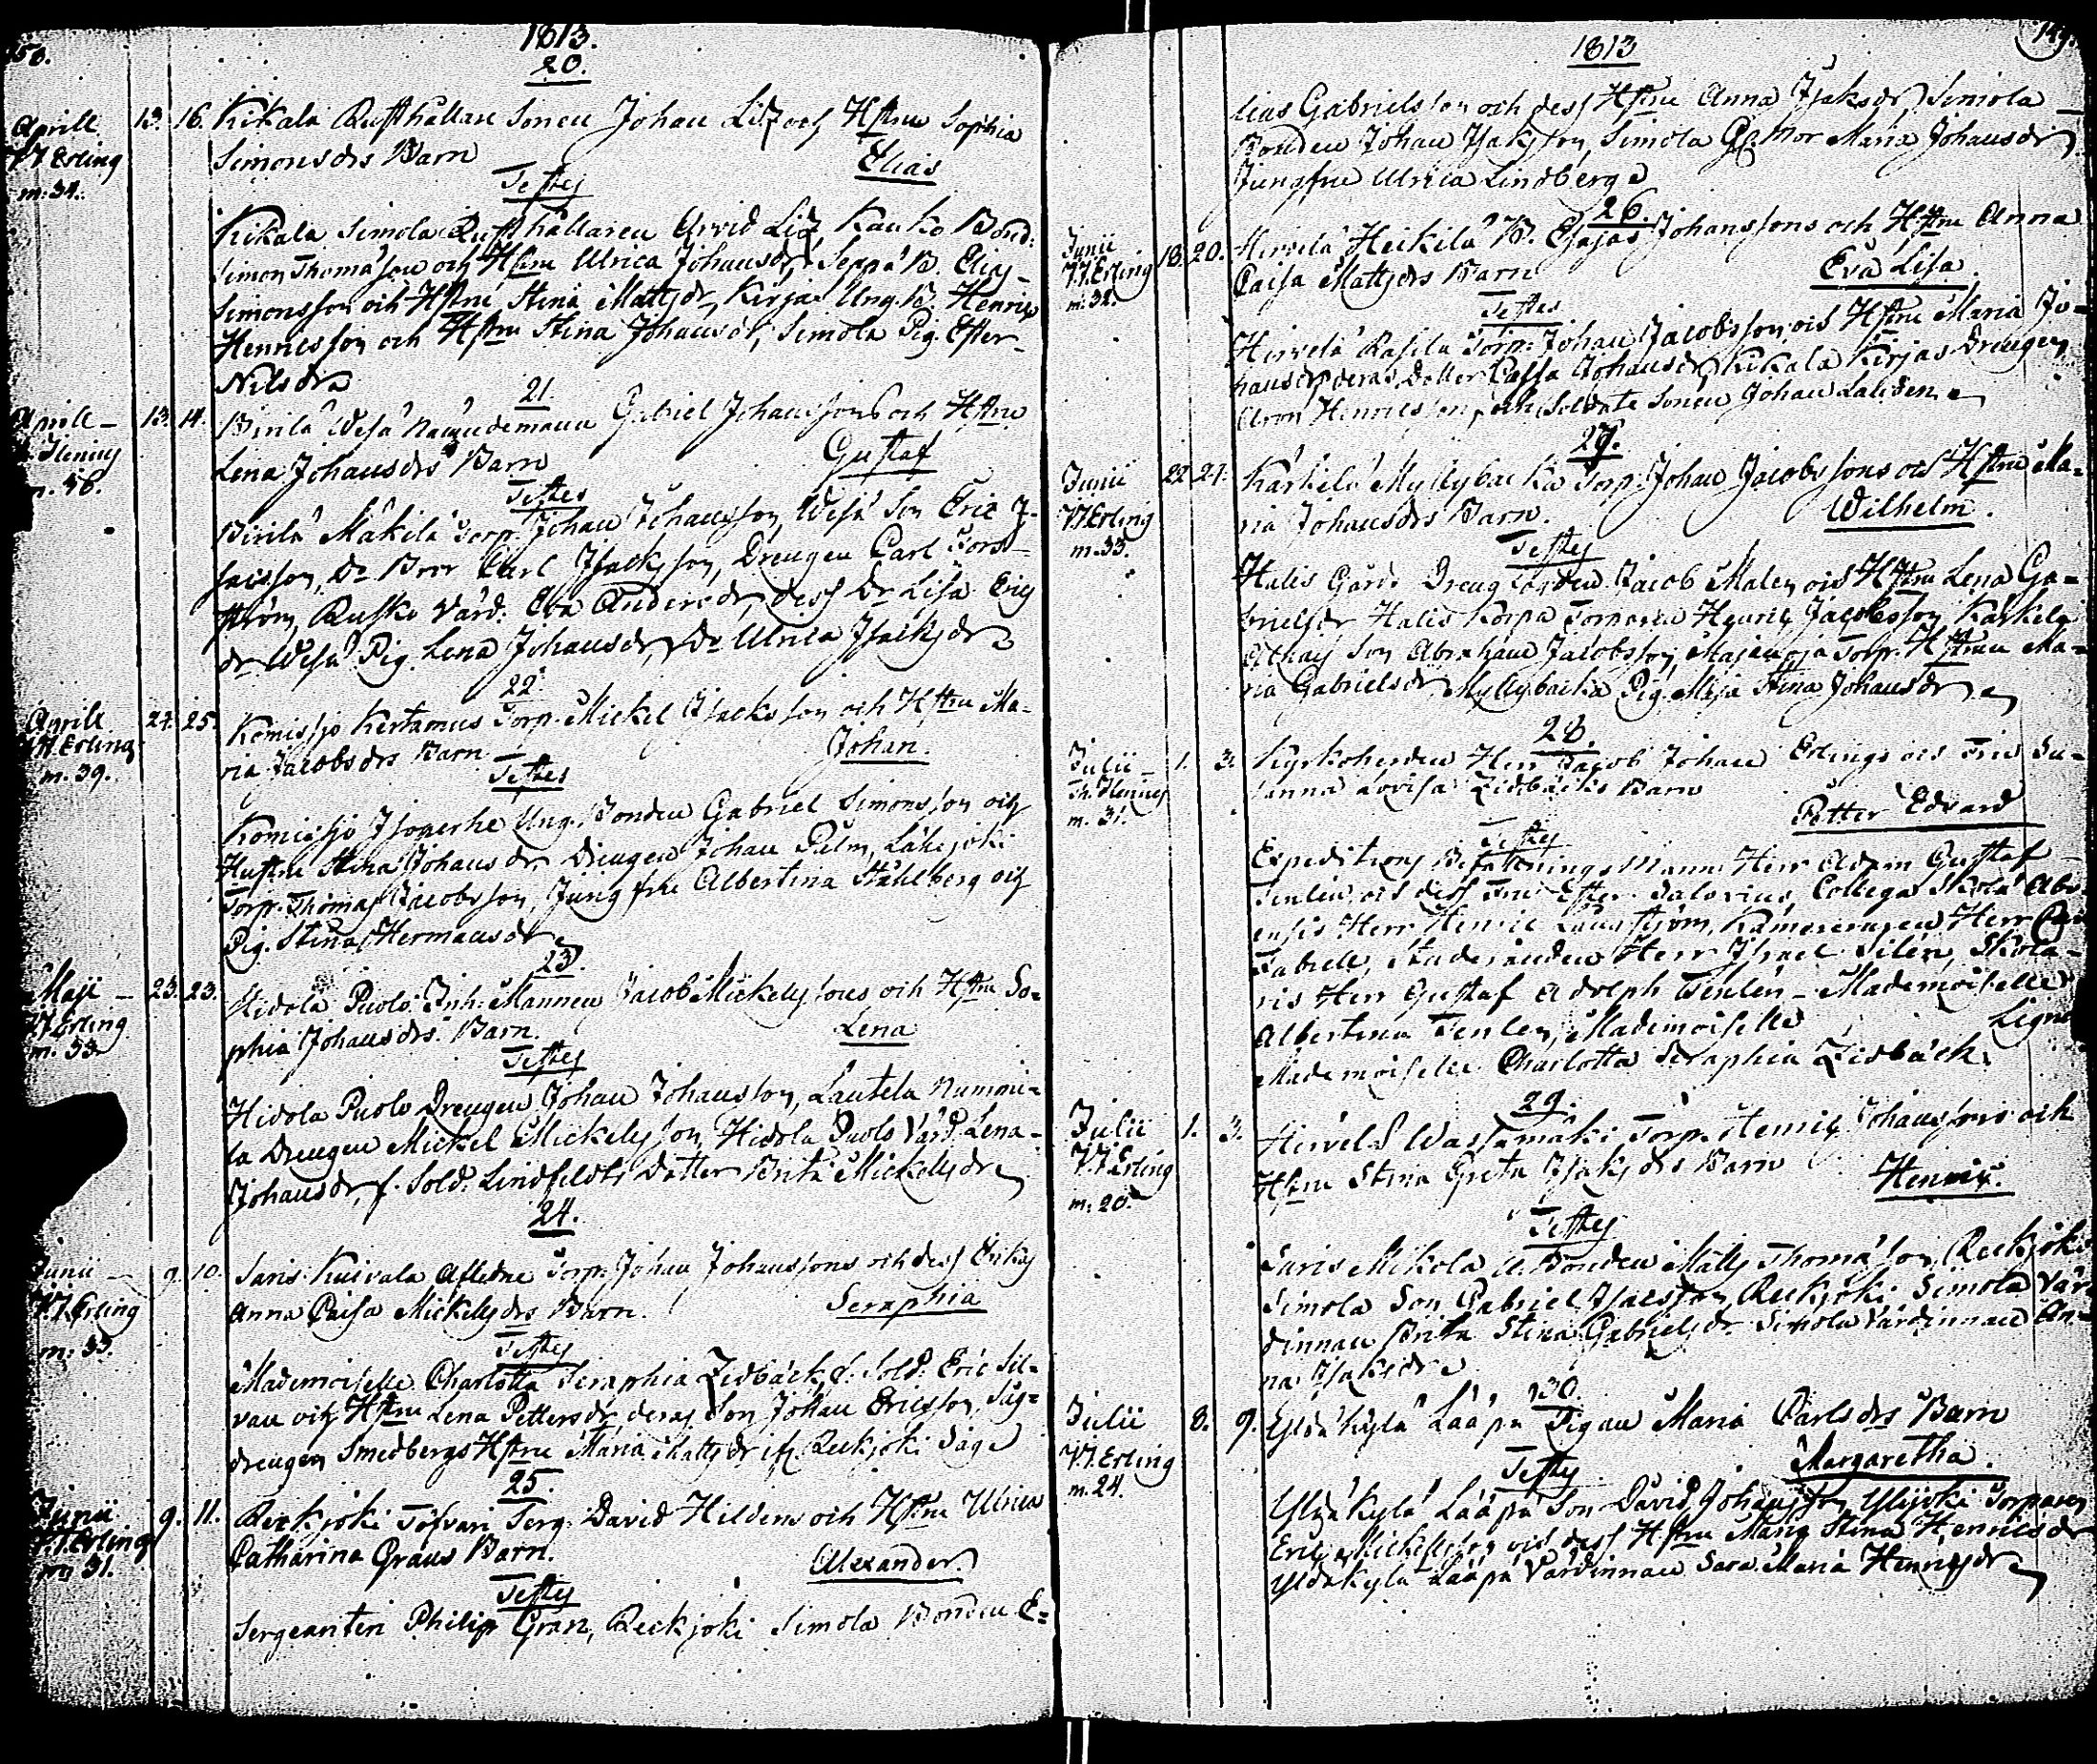 1813.
20.
Aprill 13. 16. Kikala Rusthållare Sonen Johan Lidz och Hstru Sophia
J J Erling Simonsdrs Barn Elias
m. 34. Testes
Kikala Simola Rusthållaren Arvid Lidz Kauko Bond:
Simon Thomasson och Hstru Ulrica Johansdr, Seppä B. Elias
Simonsson och Hstru Stina Mattsdr, Kirjas Ung. B. Henric
Hennesson och Hstru Stina Johansdr, Simola Pig. Ester
Nilsdr
21.
Aprill 13. 14. Birilä Wesa Nämndemann Gabriel Johanssons och Hstru
Lena Johansdrs Barn Gustaf
Testes
Birilä Mäkilä Torp. Johan Johansson, Wesa Son Eric J-
sacsson, Do Bror Carl Jsacksson, Drengen Carl Fors-
ström, Rusko Värd: Eva Andersdr, dess Dr Lisa Erics
dr Wesa Pig. Lena Johansdr, Do Ulrica Jsacksdr
22.
Aprill 24. 25. Komissjo Kertamus Torp. Mickel Jsacksson och Hstru Ma-
J J Erling ria Jacobsdrs Barn Johan.
m. 39. Testes
Komissjo Ung. Bonden Gabriel Simonsson och
Hustru Stina Johansdr Drengen Johan Palm,
Torp. Thomas Jacobsson, Jungfru Albertina Ståhlberg och
Pig. Stina Hermansdr
23.
Maji 23. 23. Hidola Puolo Inh: Mannen Jacob Mickelssons och Hstru So-
J J Erling phia Johansdrs Barn. Lena
m. 33 Testes
Hidola Puolo Drengen Johan Johansson, Lautela Nummi-
la Drengen Mickel Mickelsson, Hidola Puolo Värd. Lena
Johansdr, f. Sold. Lindfeldts Dotter Brita Mickelsdr
24.
Junii 9. 10. Saris Kuivala Aflidne Torp. Johan Johanssons och dess Enkas
J J Erling Anna Caisa Mickelsdrs Barn. Seraphia
m. 33. Testes
Mademoiselle Charlotta Seraphia Zidbäck, f. Sold. Eric Sil-
van och Hstru Lena Pettersdr, deras Son Johan Ericsson, Såg-
drengen Smedbergs Hstru Maria Mattsdr Reckjoki Såg
25.
Junii 9. 11. Reckjoki Töfvari Serg. David Hildens och Hstru Ulrica
J J Erling Catharina Grans Barn. Alexander.
m 31. Testes
Sergeanten Philip Gran, Reckjoki Simola Bonden E=
1813
149.
lias Gabrielsson och dess Hstru Anna Jsaksdr, Simola
Bonden Johan Jsaksson, Simola Mor Maria Johansdr
Jungfru Ulrica Lindberg
26.
Junii 18. 20. Hirvelä Heikilä B. Esajas Johanssons och Hstru Anna
J J Erling Caisa Mattsdrs Barn Eva Lisa.
m. 32. Testes
Hirvelä Rasila Torp. Johan Jacobsson och Hstru Maria Jo-
hansdr, deras Dotter Caisa Johansdr, Kikala Kirjas Drengen
Aron Henricsson, och Soldate Sonen Johan Laliden
27.
Junii 22 27. Kärkilä Myllybacka Torp. Johan Jacobssons och Hstru Ma-
J J Erling ria Johansdrs Barn. Wilhelm.
m. 33. Testes
Halis Gård Dreng Jacob Malen och Hstru Lena Ga-
brielsdr Halis Korpa Torparen Henric Jacobsson, Kärkilä
Son Abraham Jacobsson, Majanoja Torp. Hstrun Ma-
ria Gabrielsdr, Myllybacka Pig. Maja Stina Johansdr
28.
Julii 1. 3. Kyrkoherden Herr Jacob Johan Erlings och Fru Su-
sanna Lovisa Zidbäcks Barn
m. 31. Petter Edvard
Testes
Expeditions Befallnings Mannen Herr Adam Gustaf
Tenlén och dess Fru Ester Salovius, Collega Scholæ Abo-
ensis Herr Henric Långström, Kamereraren Herr
Fabrelle, Studeranden Herr Israel Silén, Skola-
ris Herr Gustaf Adolph Tenlén - Mademoiselle
Albertina Tenlen, Mademoiselle Lign
Mademoiselle Charlotta Seraphia Zidbäck.
29.
Julii 1. 3. Hirvelä Wassamäki Torp. Henric Johanssons och
J J Erling Hstru Stina Greta Jsaksdrs Barn Henric.
m. 20. Testes
Saris Mikola U. Bonden Matts Thomasson, Reckjoki
Simola Son Gabriel Jsacsson, Reckjoki Simola Vär-
dinnan Brita Stina Gabrielsdr, Simola Värdinnan An-
na Jsaksdr
30.
Julii 8. 9. Yldäkylä Lääpä Pigan Maria Carlsdrs Barn
J J Erling Margaretha.
m. 24. Testes
Yldäkylä Lääpä Son David Johansson, Ylijoki Torparen
Eric Mickelsson och dess Hstru Maria Stina Henricsdr
Yldäkylä Lääpä Värdinnan Sara Maria Henricsdr